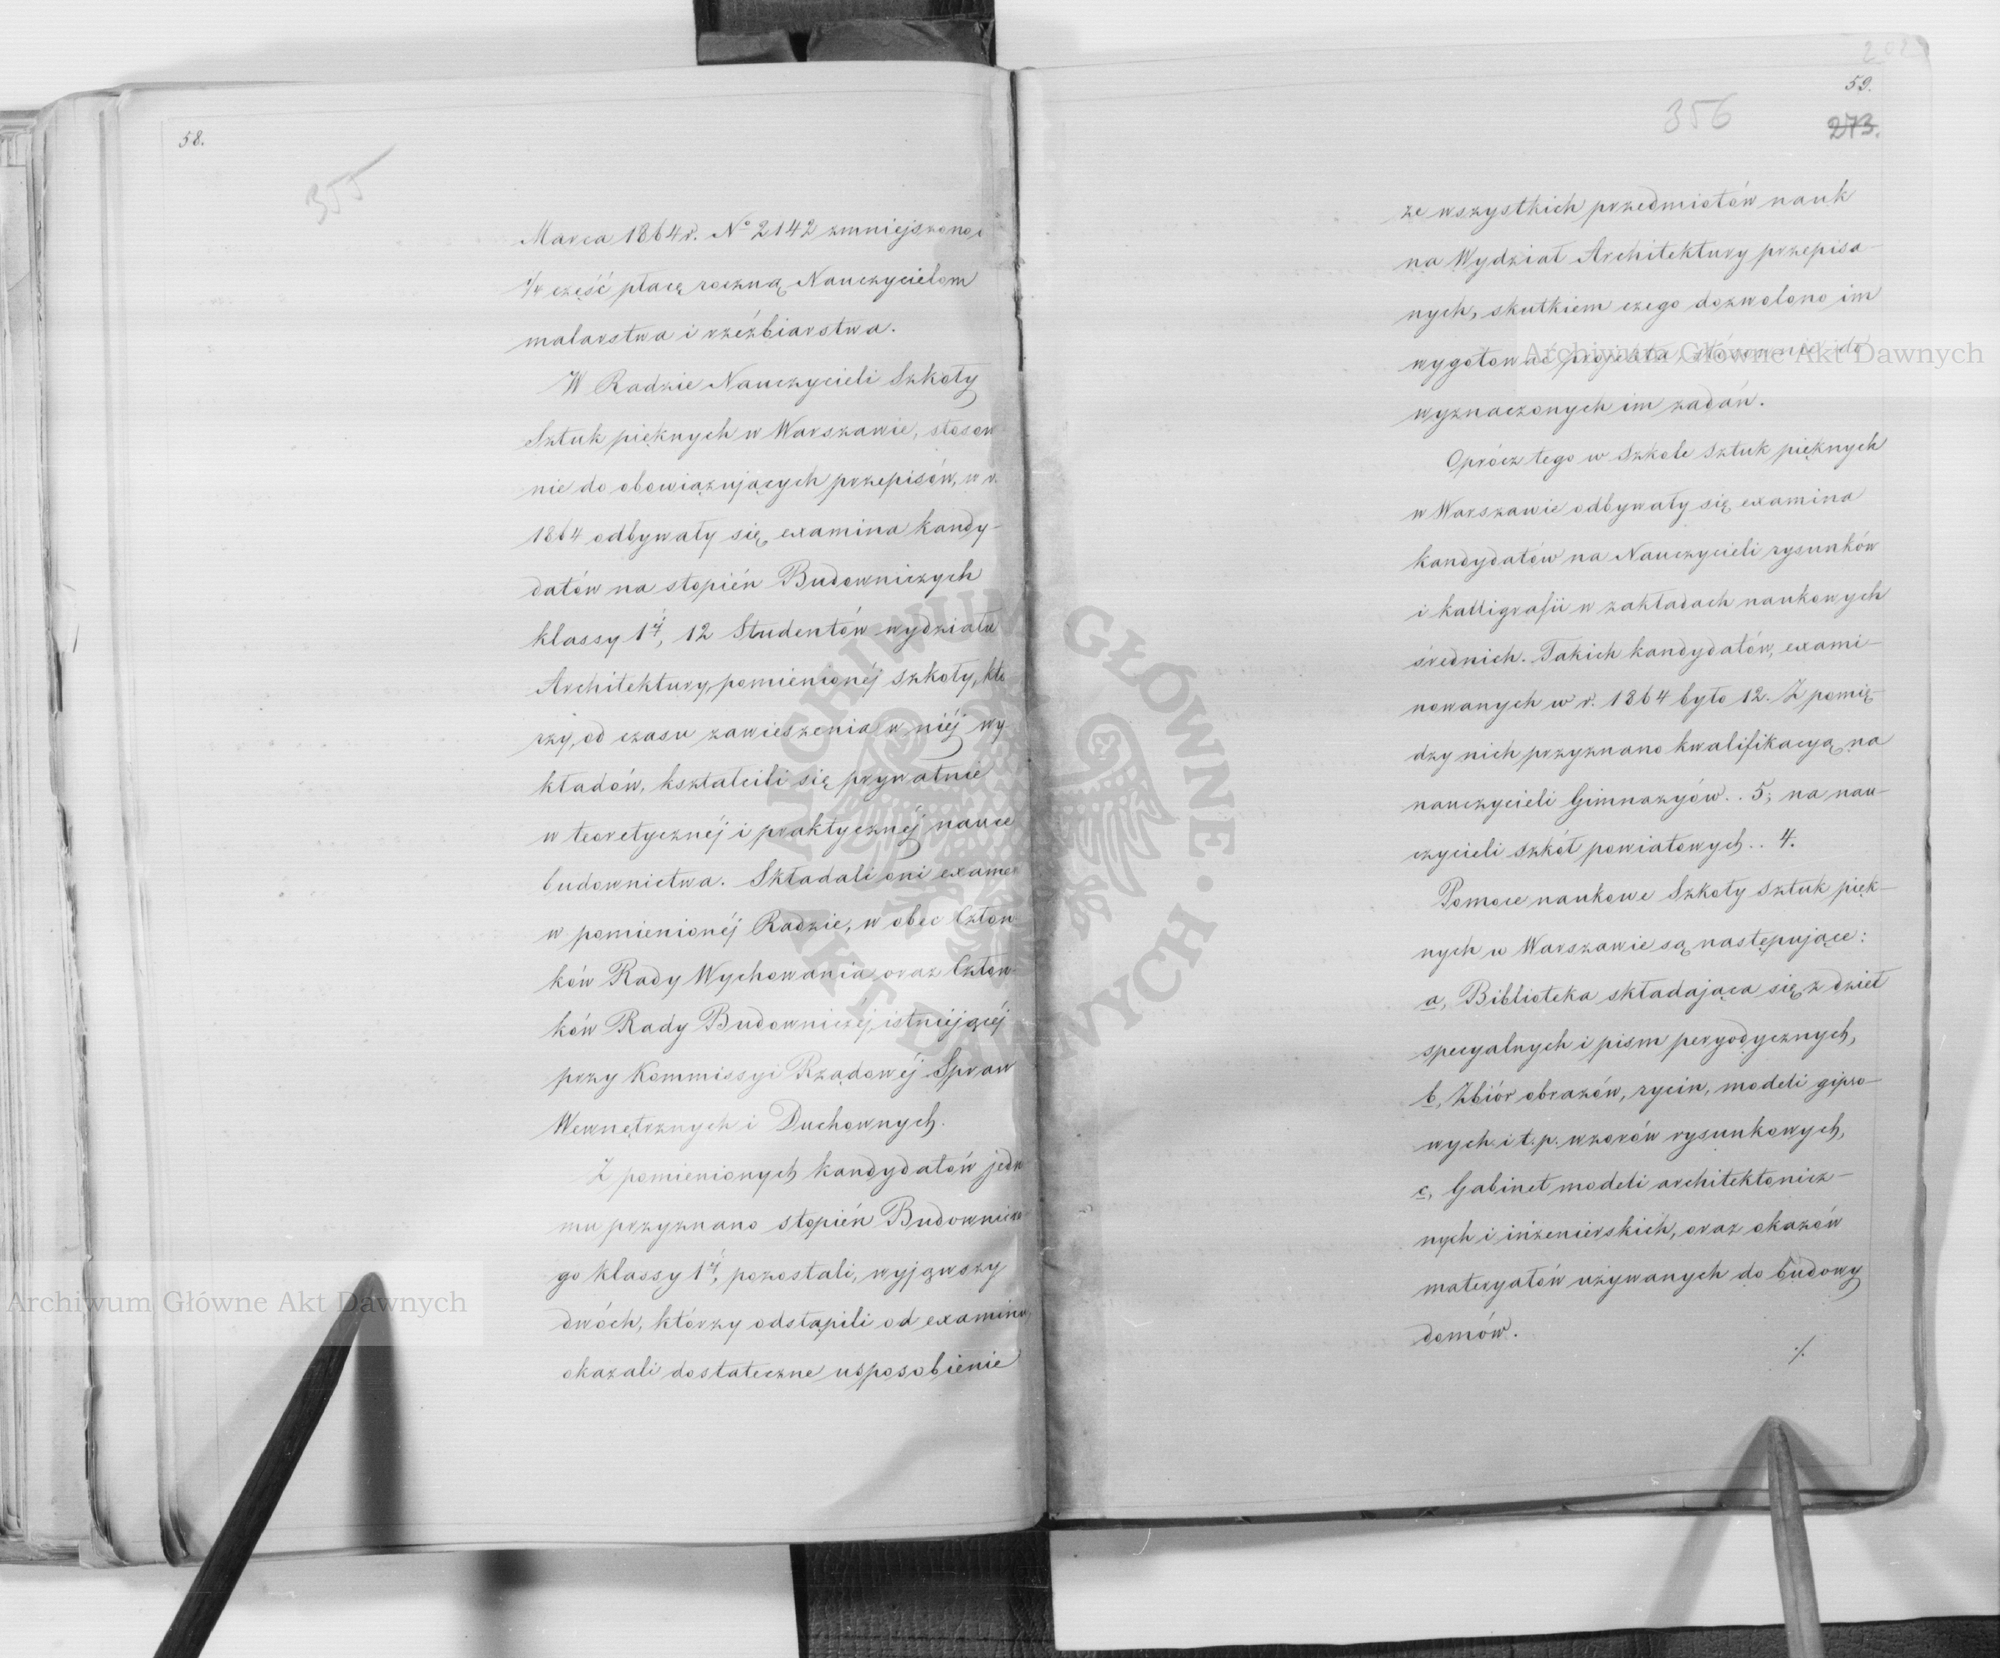 58.
355
Marca 1864 r. No 2142 zmniejszono o
1/4 część płacę roczną Nauczycielom
malarstwa i rzeźbiarstwa.
W Radzie Nauczycieli Szkoły
Sztuk pięknych w Warszawie, stosow
nie do obowiązujących przepisów, w r.
1864 odbywały się examina kandy-
datów na stopień Budowniczych
klassy 1éj, 12 Studentów wydziału
Architektury, pomienionéj szkoły, któ
rzy, od czasu zawieszenia w niéj wy
kładów, kształcili się prywatnie
w teoretycznéj i praktycznéj nauce
budownictwa. Składali oni examen
w pomienionéj Radzie, w obec Człon
ków Rady Wychowania oraz Człon-
ków Rady Budowniczéj, istniejącéj
przy Kommissyi Rządowéj Spraw
Wewnętrznych i Duchownych.
Z pomienionych kandydatów jedne
mu przyznano stopień Budownicze-
go klassy 1éj, pozostali, wyjąwszy
dwóch, którzy odstąpili od examinu,
okazali dostateczne usposobienie
202
59.
356
273.
ze wszystkich przedmiotów nauk
na Wydział Architektury przepisa-
nych, skutkiem czego dozwolono im
wygotować projekta, stósownie do
wyznaczonych im zadań.
Oprócz tego w Szkole Sztuk pięknych
w Warszawie odbywały się examina
kandydatów na Nauczycieli rysunków
i kalligrafii w zakładach naukowych
średnich. Takich kandydatów, exami-
nowanych w r. 1864 było 12. Z pomię-
dzy nich przyznano kwalifikacyą na
nauczycieli Gimnazyów.. 5; na nau-
czycieli szkół powiatowych.. 4.
Pomoce naukowe Szkoły Sztuk pięk-
nych w Warszawie są następujące:
a, Biblioteka składająca się z dzieł
specyalnych i pism peryodycznych,
b, Zbiór obrazów, rycin, modeli gipso-
wych i t. p. wzorów rysunkowych,
c, Gabinet modeli architektonicz-
nych i inżenierskich, oraz okazów
materyałów używanych do budowy
domów.
./.
Archiwum Główne Akt Dawnych
Archiwum Główne Akt Dawnych
ARCHIWUM GŁÓWNE AKT DAWNYCH